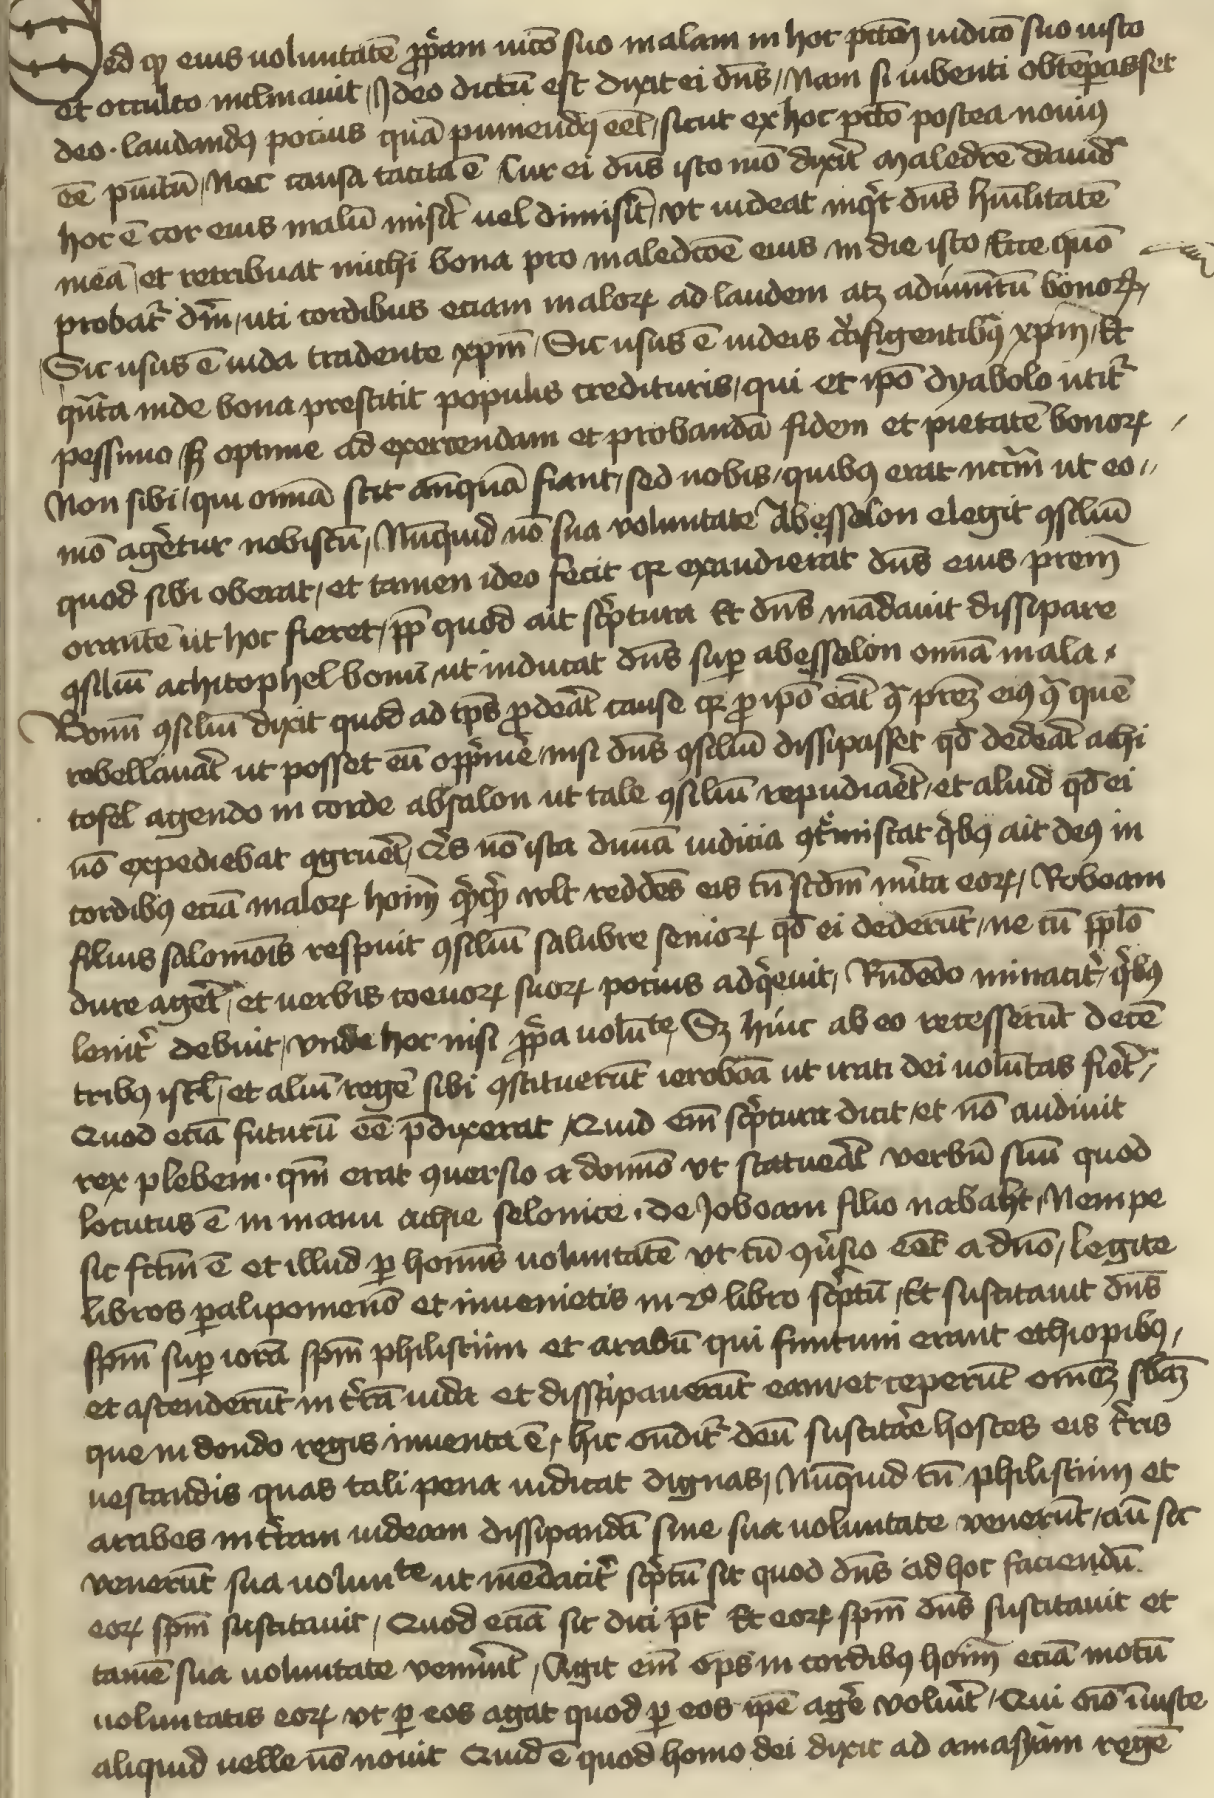 Sed qz eius uoluntatē ppͥam uicō suo malam in hoc pctm̄ iudicō suo iusto
et occulto inclinauit / Ideo dictū est dixit ei dn̄s / Nam si iubenti obtēpasset
deo · laudandꝯ pocius quā puniendꝯ eēt / sicut ex hoc pctō postea nouimꝯ
eē pūitū / Nec causa tacita ē Cur ei dn̄s isto mō dixit̄ maledcͤe dauid
hoc ē cor eius malū misit̄ uel dimisit̄ / vt uideat inqͥt dn̄s hūilitatē
meā / et retribuat michi bona pro maledcōe eius in die isto Ecce quō
probat̄ dm̄ / uti cordibus eciam maloꝝ ad laudem atqꝫ adiumtū bonoꝝ /
Sic usus ē iuda tradente xpm̄ / Sic usus ē iudeis cͥfigentibꝯ xpm̄ / Et
qn̄ta inde bona prestitit populis credituris / qui et ipō dyabolo utit̄
pessimo sꝫ optime ad exercendam et probandā fidem et pietatē bonoꝝ /
Non sibi / qui omīa scit anquā fiant / sed nobis / quibꝯ erat nccͥm ut eo //
mō agͤetur nobiscū / Nūquid nō sua voluntate Abessolon elegit ꝯsiliū
quod sibi oberat / et tamen ideo fecit qꝛ exaudierat dn̄s eius prem̄
orantē ut hoc fieret / pp̄ quod ait scͥptura Et dn̄s mādauit dissipare
ꝯsiliū achitophel bonū / ut inducat dn̄s suꝑ abessolon omīa mala ·
Bonū ꝯsiliū dixit quod ad tp̄s ꝓdeāt cause qꝛ ꝓ ipō eāt ꝯͣ prem eiꝯ ꝯͣ quē
rebellauāt ut posset eū oppͥmͤe / nisi dn̄s ꝯsiliū dissipasset qd̄ dedeāt achi
tofel agendo in corde absalon ut tale ꝯsiliū repudiaēt / et aliud qd̄ ei
nō expediebat ꝯgruēt / Qͥs nō ista diuīa iudicia ꝯtͤmiscat qͥbꝯ ait deꝯ in
cordibꝯ eciā maloꝝ hoīm qͥcqͥd vlt reddēs eis tn̄ scd̄m mͥta eoꝝ / Roboam
filius salomōis respuit ꝯsiliū salubre senioꝝ qd̄ ei dederūt / ne cū pplō
dure agēt / et uerbis coeuoꝝ suoꝝ pocius adqͥeuit / Rn̄dēdo minacit̄ / qͥbꝯ
lenit̄ debuit / vnde hoc nisi ppͥa uolūte / Sꝫ hinc ab eo recesserūt decē
tribꝯ isrl̄ / et aliū regē sibi ꝯstituerūt ieroboā ut irati dei uolūtas fiēt /
Quod eciā futurū eē p̄dixerat / Quid em̄ scͥptura dicit / et nō audiuit
rex plebem · qm̄ erat ꝯuersio a domīo vt statueāt verbū suū quod
locutus ē in manu achie selonite · de Joboam filio nabaht / Nempe
sic fctm̄ ē et illud ꝑ homīs uoluntatē vt tū ꝯͥuersio eēt a dn̄o / legite
libros paralipomenō et inuenietis in 2o libro scͥptū / Et suscitauit dn̄s
spm̄ suꝑ iorā spm̄ philistiim et arabū qui finitimi erant ethiopibꝯ /
et ascenderūt in tͤrā iuda et dissipauerūt eam / et ceperūt omēꝫ sbāꝫ
que in domo regis inuenta ē / hic ondit̄ deū suscitāe hostes eis tͤris
uestandis quas tali pena iudicat dignas / Nūquid tn̄ philistiim et
arabes in tͤram iudeam dissipandā sine sua uoluntate venerūt / aū sic
venerūt sua uolunte ut mēdacit̄ scͥptū sit quod dn̄s ad hoc faciendū
eoꝝ spm̄ suscitauit / Quod eciā sic dici pt̄ Et eoꝝ spm̄ dn̄s suscitauit et
tamē sua uoluntate venͤint / Agit em̄ ops in cordibꝯ hoīm eciā motū
uoluntatis eoꝝ vt ꝑ eos agat quod ꝑ eos ipē agͤe voluit̄ / Qui oīo iīuste
aliquid uelle nō nouit Quid ē quod homo dei dixit ad amasyam regē